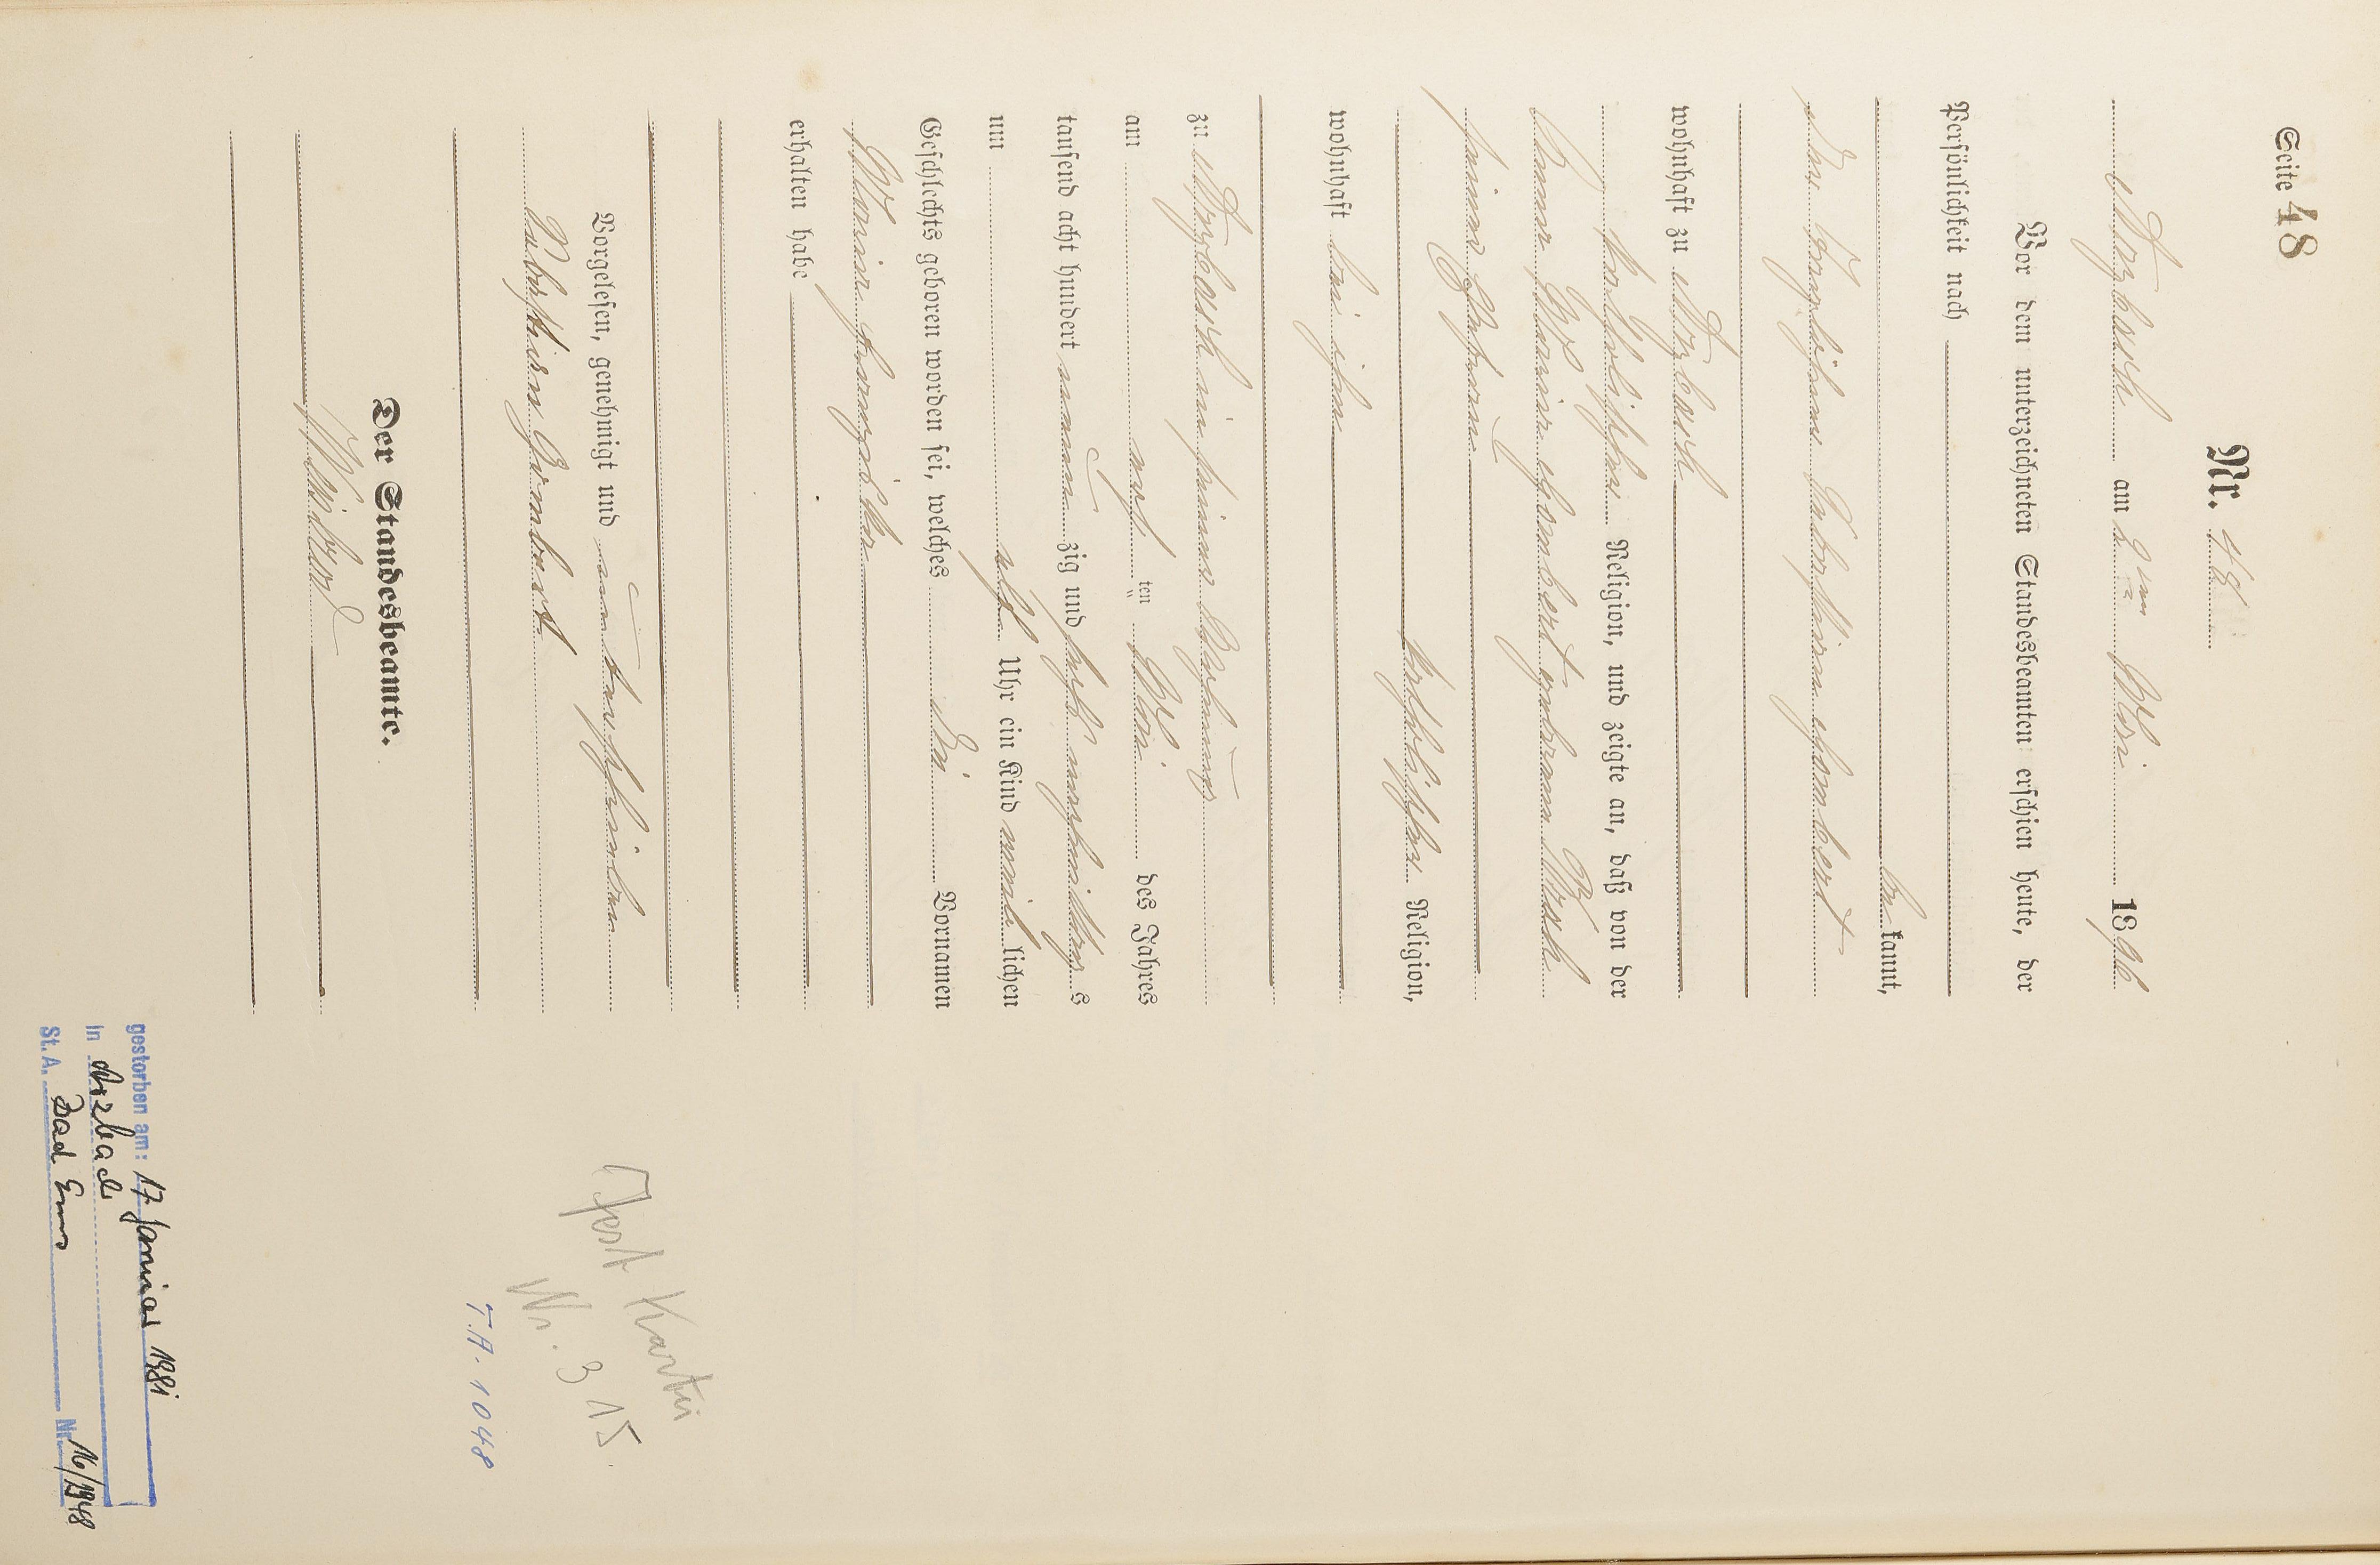 Seite 48
Nr. 48
Arzbach am 2ten Mai 1896
Vor dem unterzeichneten Standesbeamten erschien heute, der
Persönlichkeit nach
be kannt,
der Taglöhner Sebastian Gombert
wohnhaft zu Arzbach
katholischer Religion, und zeigte an, daß von der
Anna Maria Gombert geborenen
seiner Ehefrau
katholischer Religion,
wohnhaft bei ihm
zu Arzbach in seiner Wohnung
am ersten Mai des Jahres
tausend acht hundert neunzig und sechs s
um elf Uhr ein Kind weib lichen
Geschlechts geboren worden sei, welches die Vornamen
Maria
erhalten habe
Vorgelesen, genehmigt und unterschrieben
Sebastian Gombert
Der Standesbeamte.
Test Kartei
Nr. 315
T.A. 1048
gestorben am: 17. Januar 1981
in Arzbach
St. A. Bad Ems Nr.